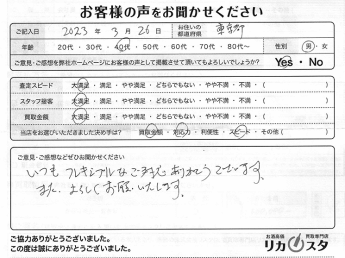 お客様の声をお聞かせください
ご記入日 2023年 3月 26日 お住いの都道府県 東京都
年齢 20代・30代・40代・50代・60代・70代・80代〜 性別 男・女
ご意見・ご感想を弊社ホームページにお客様の声として掲載させて頂いてもよろしいでしょうか? Yes・No
査定スピード 大満足・満足・やや満足・どちらでもない・やや不満・不満・( )
スタッフ接客 大満足・満足・やや満足・どちらでもない・やや不満・不満・( )
買取金額 大満足・満足・やや満足・どちらでもない・やや不満・不満・( )
当店をお選びいただきました決め手は? 買取金額・対応力・利便性・スピード・その他( )
ご意見・ご感想などぜひお聞かせください
いつもフレキシブルなご対応ありがとうございます。
また、よろしくお願いいたします。
ご協力ありがとうございました。
この度は誠にありがとうございました。
お酒高価買取専門店
リカスタ